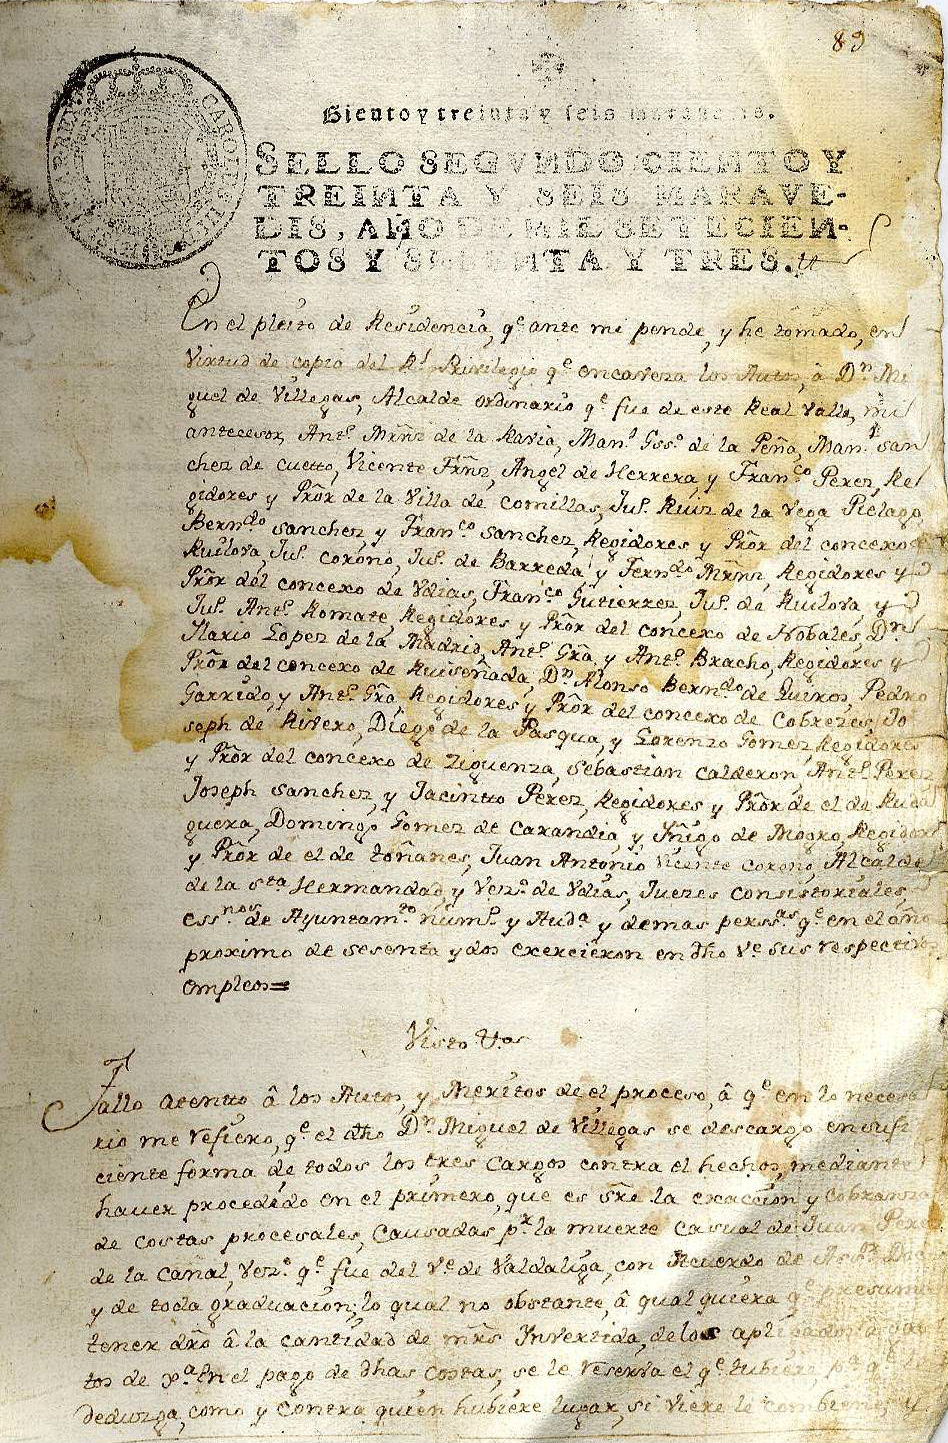 89
CAROLUS III
Siento y treinta y seis maravedis.
SELLO SEGVNDO, CIENTO Y
TREINTA Y SEIS MARAVE-
DIS, AÑO DE MIL SETECIEN-
TOS Y SESENTA Y TRES.
En el pleito de Residencia, qe. ante mi pende, y he tomado, en
Virtud de copia del Rl. Privilegio qe. encaveza los Autos, à Dn. Mi
guel de Villegas, Alcalde ordinario qe. fue de este Real Valle, mi
antecesor, Anto. Mrñz de la Ravia, Manl. Gsso. de la Peña, Manl. San
chez de Cuetto, Vicente Frñz, Angel de Herrera, y Franco. Perez, Re
gidores y Prôr de la Villa de Comillas, Jul. Ruiz de la Vega Pielago,
Berndo. Sanchez y Franco. Sanchez, Regidores y Prôr del concexo de
Ruilova, Jul. Corono, Jul. de Barreda, y Ferndo. Mrñz, Regidores y
Prôr del concexo de Vdias, Franco. Gutierrez, Jul. de Ruilova, y
Jul. Anto. Romate, Regidores y Prôr del concexo de Nobales, Dn.
Ilario Lopez de la Madrid, Anto. Gra. y Anto. Bracho, Regidores y
Prôr del concexo de Ruiseñada, Dn. Alonso Berndo. de Quiros, Pedro
Garrido, y Anto. Gra. Regidores y Prôr del concexo de Cobreces, Jo
seph de Rivero, Diego de la Pasqua, y Lorenzo Gomez Regidores
y Prôr del concexo de Ziguenza, Sebastian Calderon, Anto. Perez
Joseph Sanchez, y Jacintto Perez, Regidores y Prôr de el de Ruda
guera, Domingo Gomez de Carandia, y Yñigo de Mogro, Regidor
y Prôr de el de toñanes, Juan Antonio Vicente Corono, Alcalde
de la Sta. Hermandad, y Vezo. de Vdias, Juezes Consistoriales,
Essnos. de Ayuntamto. numo. y Auda. y demas perssas. qe. en el año
proximo de sesenta y dos exercieron en dho Ve. sus respectivos
empleos=
Visto &as
Fallo atentto â los Autos, y Meritos de el proceso, â qe. en lo necesa
rio me refiero, qe. el dho Dn. Miguel de Villegas se descargo en sufi
ciente forma de todos los tres Cargos contra el hechos, mediante
haver procedido en el primero, que es sre la exaccion y cobranza
de costas procesales, causadas pr. la muerte casual de Juan Perez
de la Canal, Vezo. qe. fue del Ve. de Valdaliga, con Acuerdo de
y de toda graduacion; lo qual no obstante, â qual quiera qe. presuma
tener dro â la cantidad de mrs Invertida, de los aplicados a gas
tos de Xa. en el pago de dhas costas, se le reserva el qe. tubiere, pa. qe.
deduzga, como y contra quien hubiere lugar, si viere le combiene, y